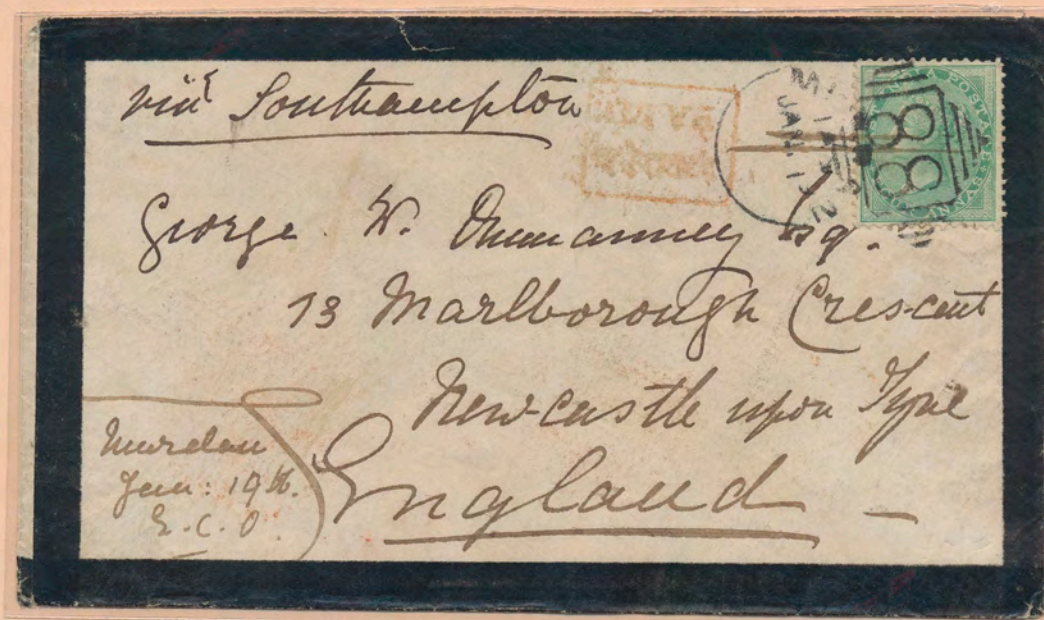 via Southampton
George. W. Ommanney Esq.
13 Marlborough Crescent
Newcastle upon Tyne
England
Murdan
Jan: 19th.
E.C.O.
JAN
88